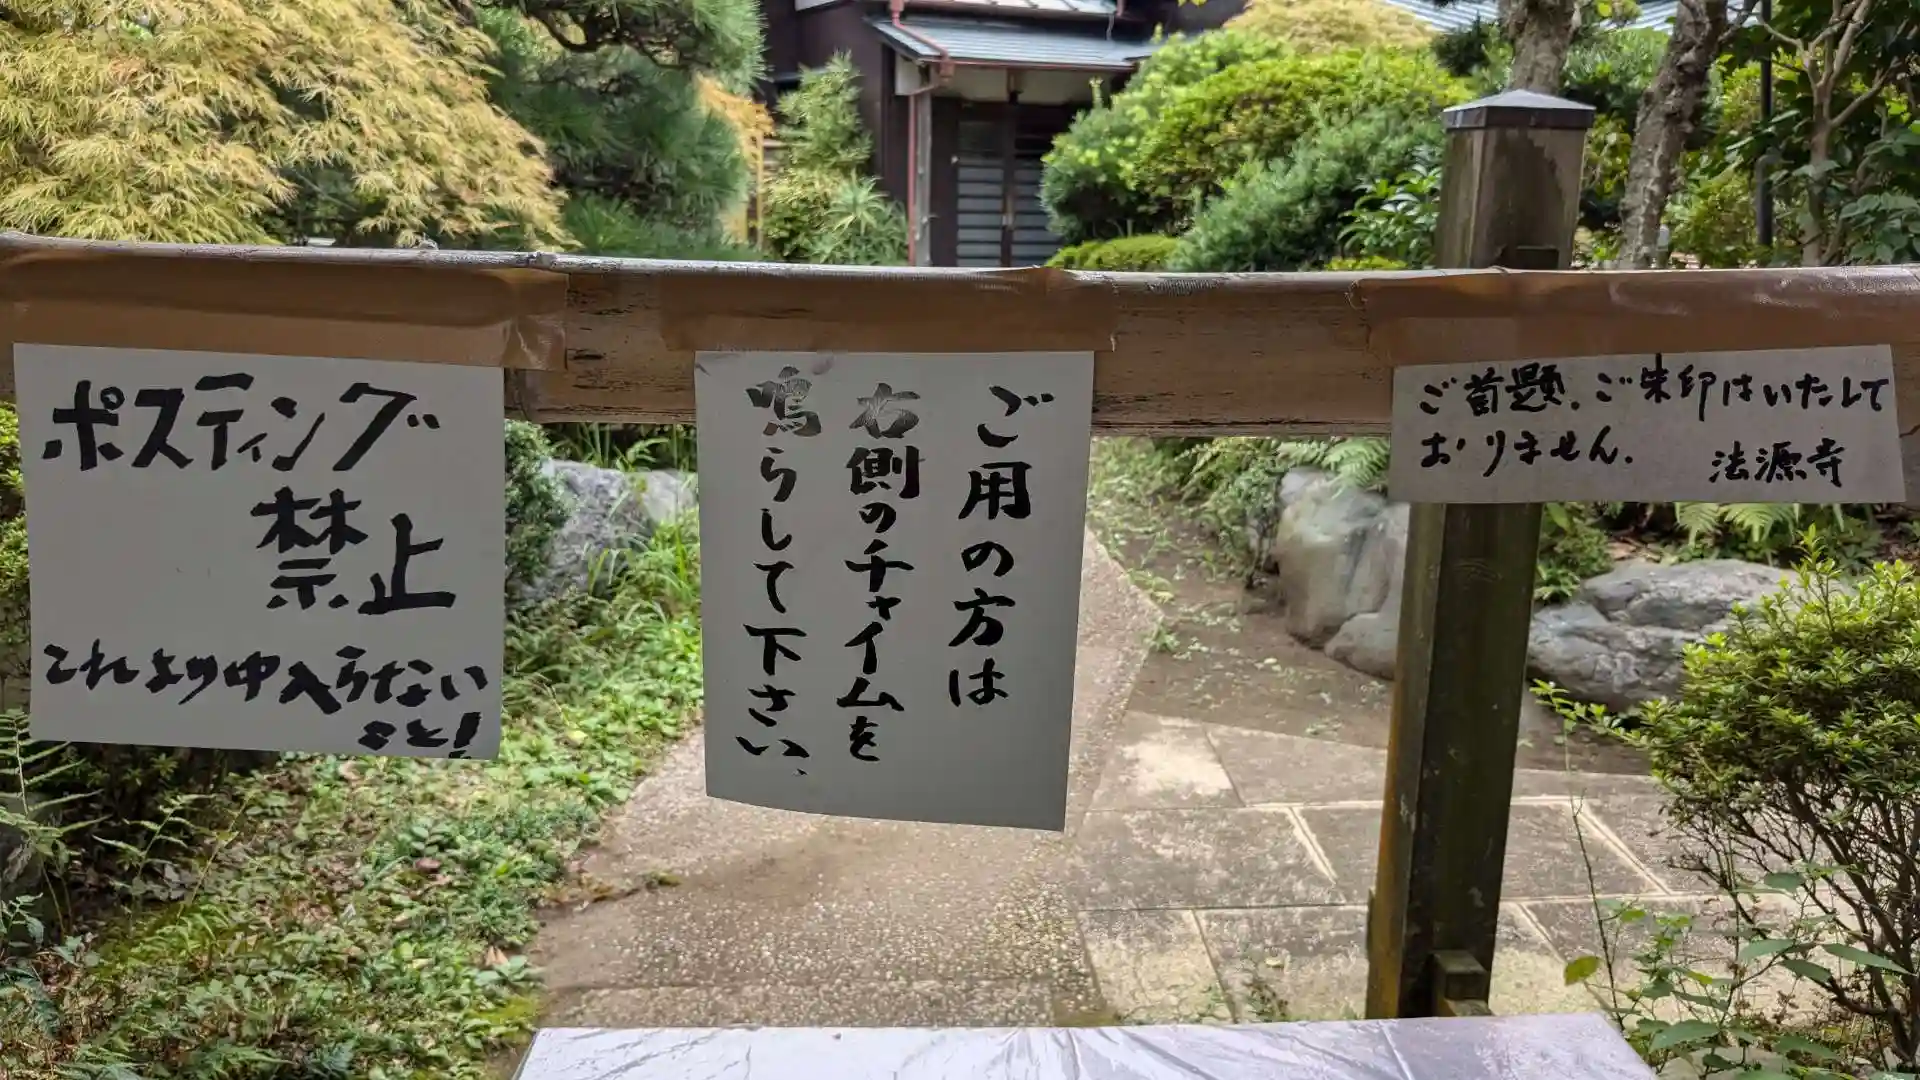 ポスティング
禁止
これより中入らない
こと!
ご用の方は
右側のチャイムを
鳴らして下さい、
ご首題、ご朱印はいたして
おりません.
法源寺